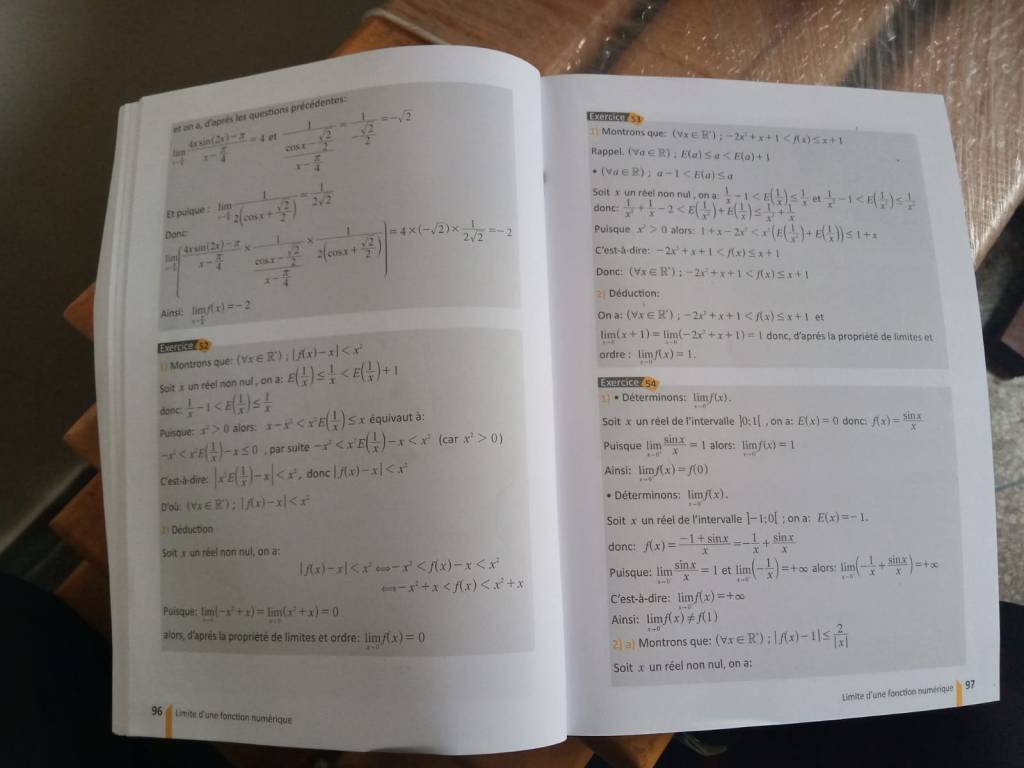 et on a, d'après les questions précédentes:
lim_{x→π/4} (4x sin(2x) − π)/(x − π/4) = 4 et 1/((cos x − √2/2)/(x − π/4)) = 1/(−√2/2) = −√2
Et puique : lim_{x→π/4} 1/(2(cos x + √2/2)) = 1/(2√2)
Donc:
lim_{x→π/4} [(4x sin(2x) − π)/(x − π/4) × 1/((cos x − √2/2)/(x − π/4)) × 1/(2(cos x + √2/2))] = 4 × (−√2) × 1/(2√2) = −2
Ainsi: lim_{x→π/4} f(x) = −2
Exercice 52
1) Montrons que: (∀x ∈ ℝ*) ; |f(x) − x| < x²
Soit x un réel non nul , on a: E(1/x) ≤ 1/x < E(1/x) + 1
donc: 1/x − 1 < E(1/x) ≤ 1/x
Puisque: x² > 0 alors: x − x² < x²E(1/x) ≤ x équivaut à:
−x² < x²E(1/x) − x ≤ 0 , par suite −x² < x²E(1/x) − x < x² (car x² > 0)
C'est-à-dire: |x²E(1/x) − x| < x², donc |f(x) − x| < x²
D'où: (∀x ∈ ℝ*) ; |f(x) − x| < x²
2) Déduction
Soit x un réel non nul, on a:
|f(x) − x| < x² ⟺ −x² < f(x) − x < x²
⟺ −x² + x < f(x) < x² + x
Puisque: lim_{x→0} (−x² + x) = lim_{x→0} (x² + x) = 0
alors, d'aprés la propriété de limites et ordre: lim_{x→0} f(x) = 0
96 Limite d'une fonction numérique
Exercice 53
1) Montrons que: (∀x ∈ ℝ*) ; −2x² + x + 1 < f(x) ≤ x + 1
Rappel. (∀a ∈ ℝ) ; E(a) ≤ a < E(a) + 1
• (∀a ∈ ℝ) ; a − 1 < E(a) ≤ a
Soit x un réel non nul , on a: 1/x − 1 < E(1/x) ≤ 1/x et 1/x² − 1 < E(1/x²) ≤ 1/x²
donc: 1/x² + 1/x − 2 < E(1/x²) + E(1/x) ≤ 1/x² + 1/x
Puisque x² > 0 alors: 1 + x − 2x² < x²(E(1/x²) + E(1/x)) ≤ 1 + x
C'est-à-dire: −2x² + x + 1 < f(x) ≤ x + 1
Donc: (∀x ∈ ℝ*) ; −2x² + x + 1 < f(x) ≤ x + 1
2) Déduction:
On a: (∀x ∈ ℝ*) ; −2x² + x + 1 < f(x) ≤ x + 1 et
lim_{x→0} (x + 1) = lim_{x→0} (−2x² + x + 1) = 1 donc, d'après la propriété de limites et
ordre : lim_{x→0} f(x) = 1.
Exercice 54
1) • Déterminons: lim_{x→0⁺} f(x).
Soit x un réel de l'intervalle ]0;1[ , on a: E(x) = 0 donc: f(x) = sin x/x
Puisque lim_{x→0⁺} sin x/x = 1 alors: lim_{x→0⁺} f(x) = 1
Ainsi: lim_{x→0⁺} f(x) = f(0)
• Déterminons: lim_{x→0⁻} f(x).
Soit x un réel de l'intervalle ]−1;0[ ; on a: E(x) = −1.
donc: f(x) = (−1 + sin x)/x = −1/x + sin x/x
Puisque: lim_{x→0⁻} sin x/x = 1 et lim_{x→0⁻} (−1/x) = +∞ alors: lim_{x→0⁻} (−1/x + sin x/x) = +∞
C'est-à-dire: lim_{x→0⁻} f(x) = +∞
Ainsi: lim_{x→0⁻} f(x) ≠ f(1)
2) a) Montrons que: (∀x ∈ ℝ*) ; |f(x) − 1| ≤ 2/|x|
Soit x un réel non nul, on a:
Limite d'une fonction numérique 97